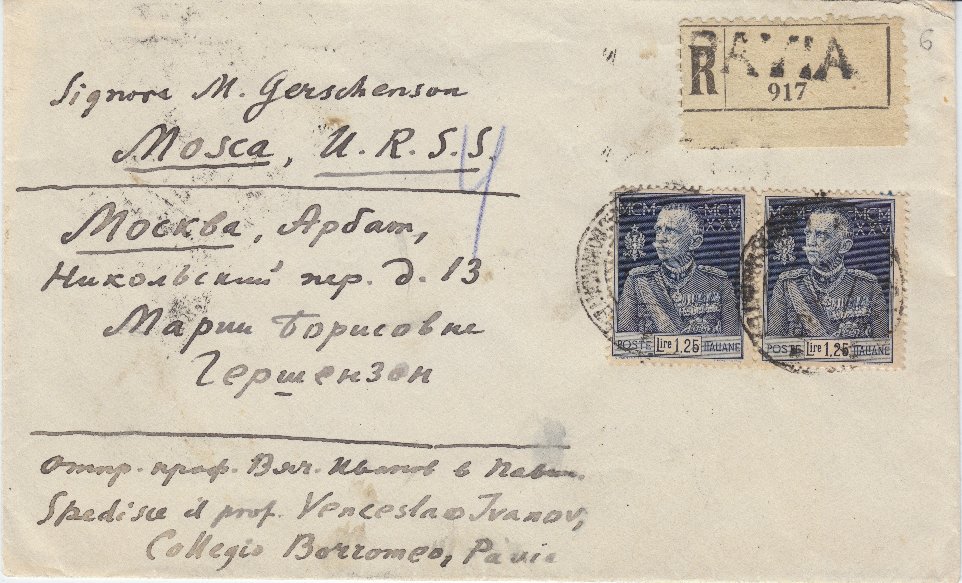 Signora M. Gerschenson
Mosca, U.R.S.S.
Москва, Арбат,
Никольский пер. д. 13
Марии Борисовне
Гершензон
Отпр. проф. Вяч. Иванов в Павии.
Spedisce il prof. Venceslao Ivanov,
Collegio Borromeo, Pavia
R
PAVIA
917
6
MCM
MCM
XXV
POSTE Lire 1,25 ITALIANE
MCM
MCM
XXV
POSTE Lire 1,25 ITALIANE